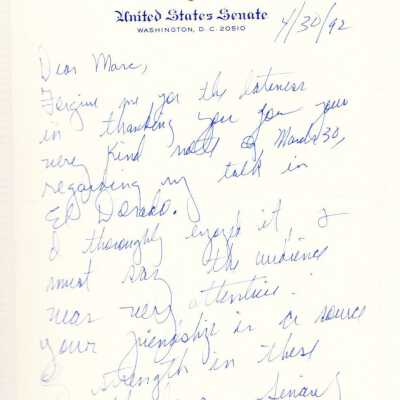 United States Senate
WASHINGTON, D.C. 20510
4/30/92
Dear Marc,
Forgive me for the lateness
in thanking you for your
very kind note of March 30,
regarding my talk in
El Dorado.
I thoroughly enjoyed it, I
must say the audience
was very attentive!
Your friendship is a source
of strength in these